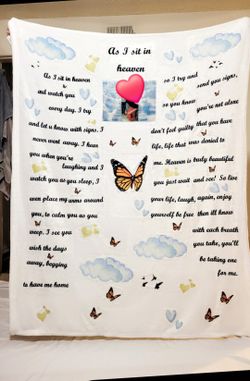 As I sit in
heaven
As I sit in heaven
and watch you
every day, I try
and let u know with signs, I
never went away. I hear
you when you're
laughing and I
watch you as you sleep, I
even place my arms around
you, to calm you as you
weep. I see you
wish the days
away, begging
to have me home
so I try and
send you signs,
so you know
you're not alone
don't feel guilty that you have
life, life that was denied to
me. Heaven is truly beautiful
you just wait and see! So live
your life, laugh again, enjoy
yourself be free then ill know
with each breath
you take, you'll
be taking one
for me.